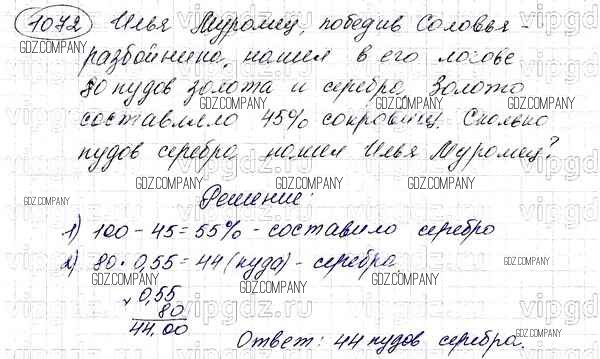 1072 Илья Муромец, победив Соловья-
разбойника, нашел в его логове
80 пудов золота и серебра. Золото
составляло 45% сокровищ. Сколько
пудов серебра нашел Илья Муромец?
Решение:
1) 100 - 45 = 55% - составило серебро
2) 80 · 0,55 = 44 (пуда) - серебра.
× 0,55
80
44,00
Ответ: 44 пудов серебра.